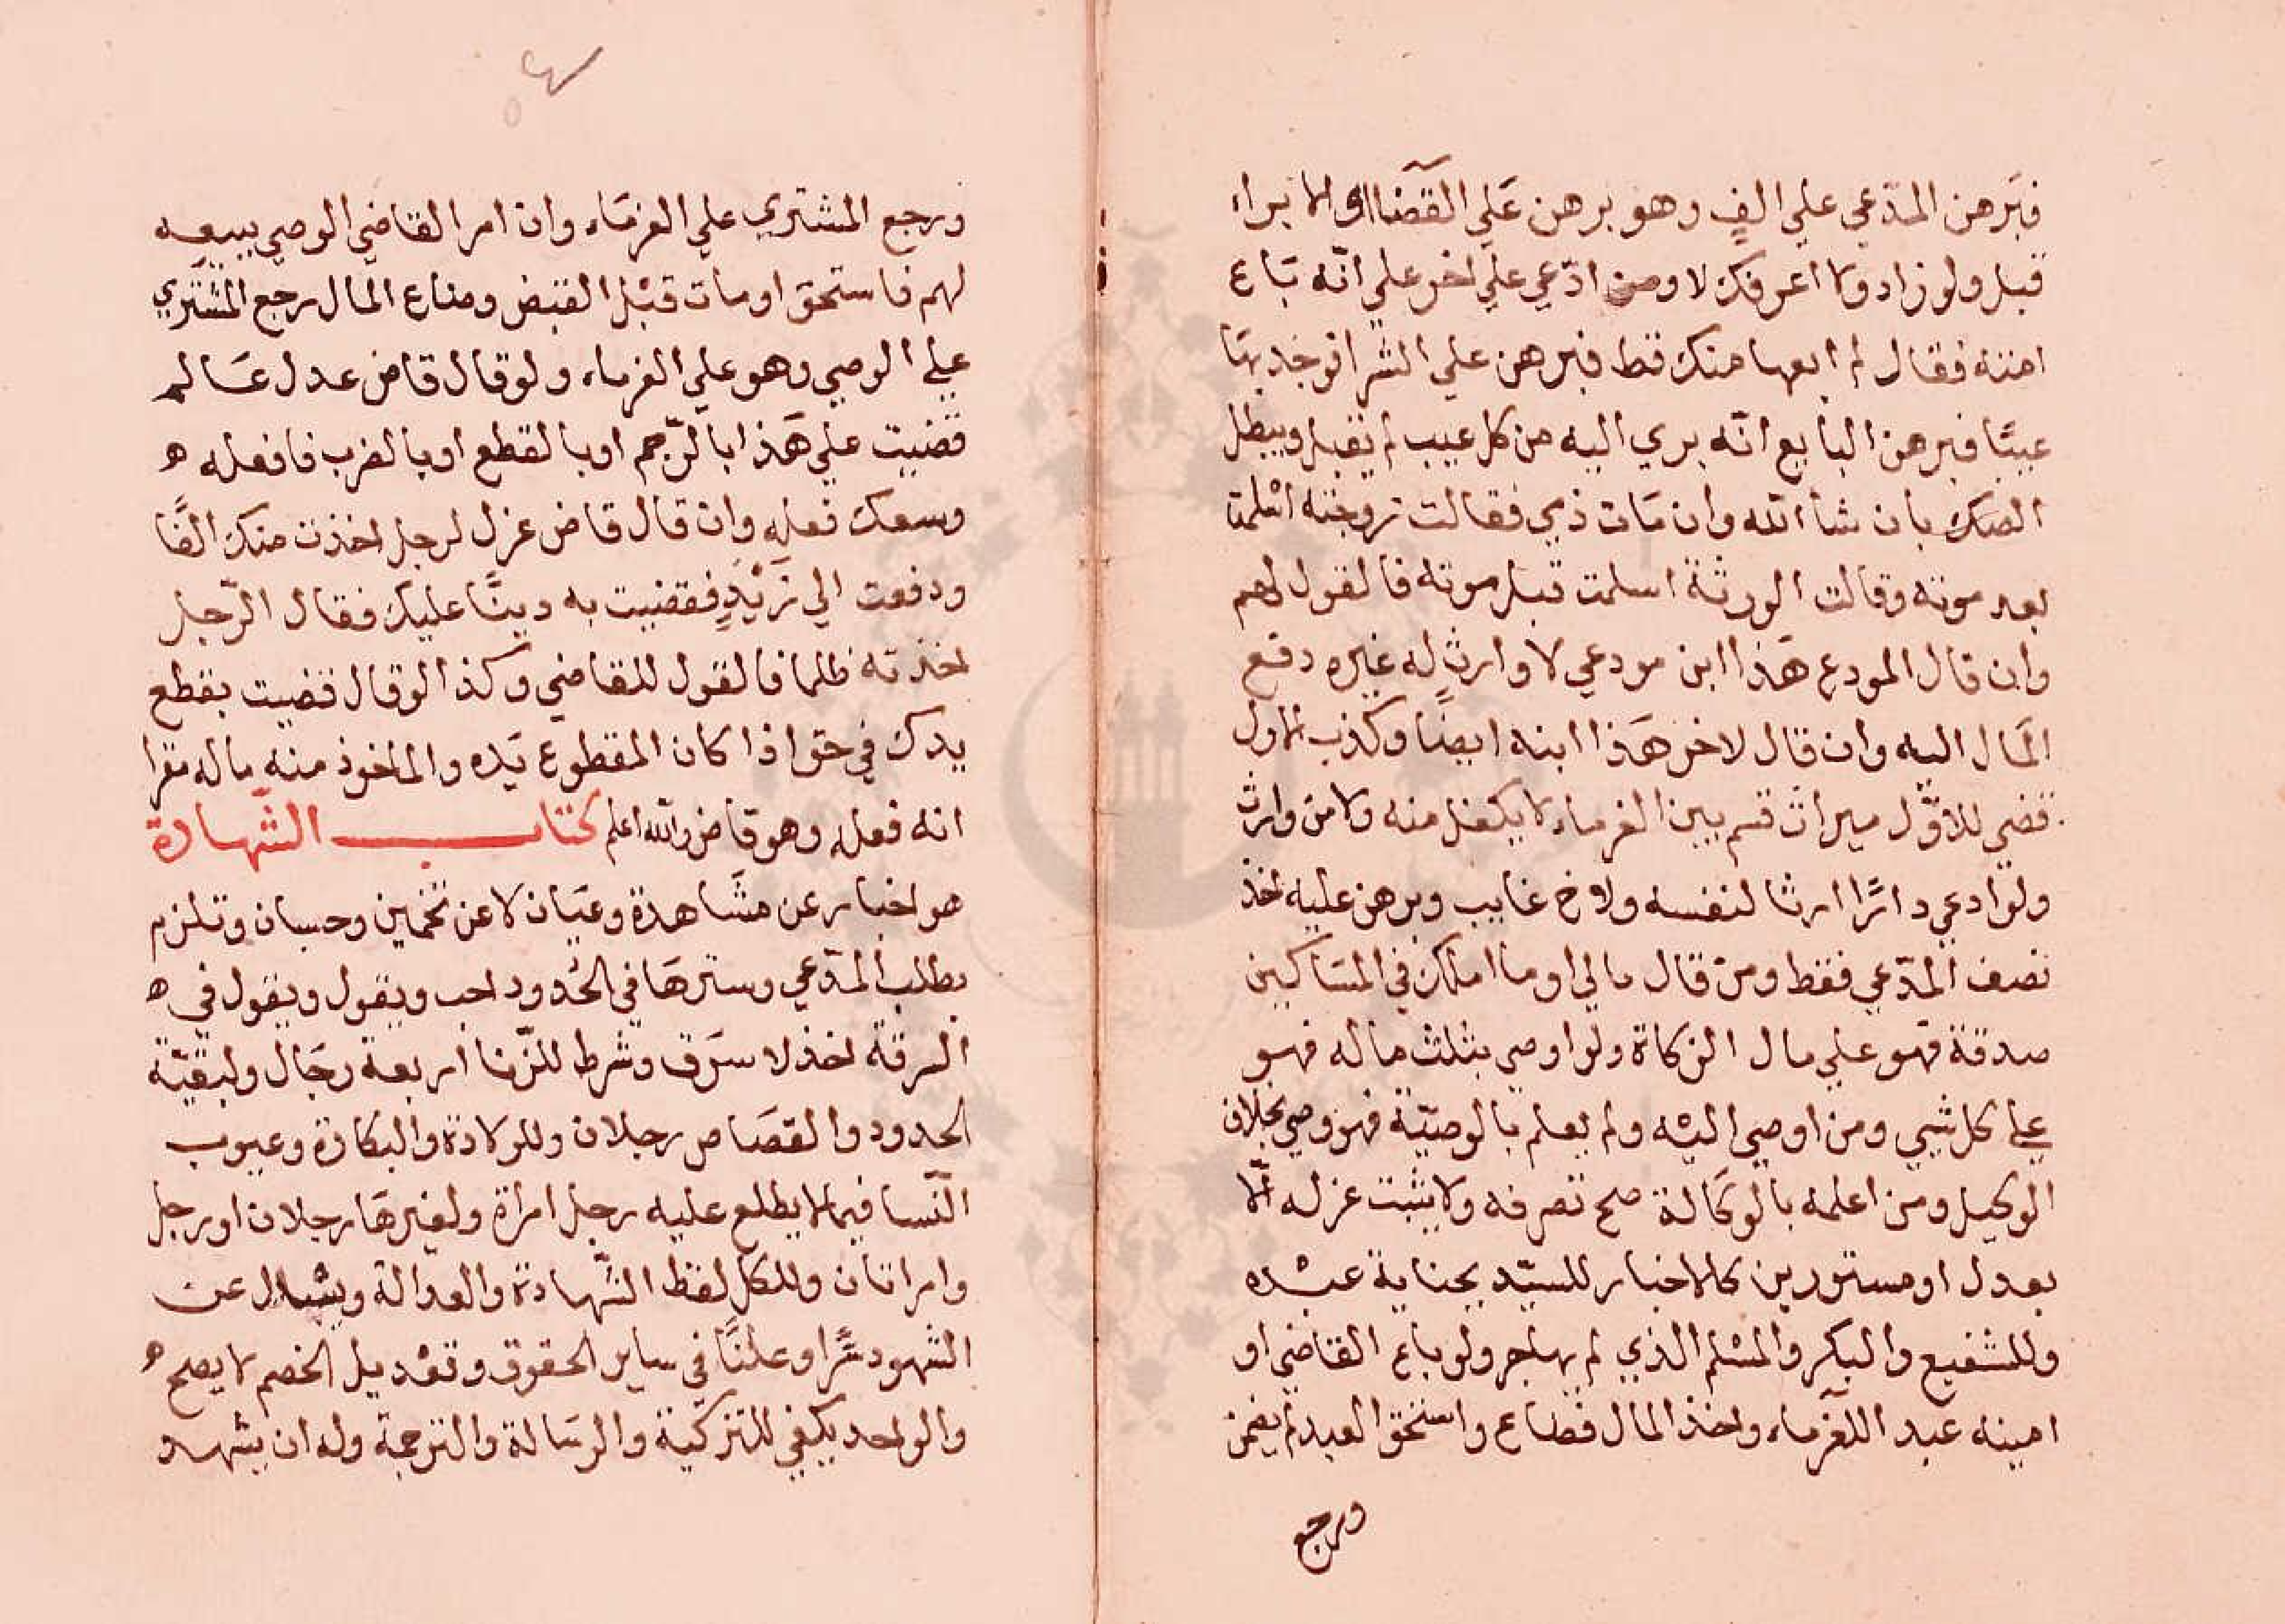 فبرهن المدّعي علي الفٍ وهو برهن عَلي القَضَاا والابراء
قبل ولو زاد ولا اعرفك لا ومن ادّعي علي اخر علي انّه بَاع
امنته فقال لم ابعها منك قط فبرهن علي الشرا فوجد بهَا
عيبًا فبرهن البايع انّه بري اليه من كل عيب لم يقبل ويبطل
الصك بان شأ الله وان مَات ذمي فقالت زوجته اسْلمت
بعد موته وقالت الورثة اسلمت قبل موته فالقول لهم
وان قال المودع هَذا ابن مودعي لا وارث له غيره دفع
المَال اليه وان قال لاخر هَذا ابنه ايضًا وكذب الاول
قضي للاوّل ميراث قسم بين الغرماء لا يكفل منه ولا من وارث
ولو ادعي دارًا ارثا لنفسه ولاخ غايب وبرهن عليه اخذ
نصف المدّعي فقط ومن قال مالي او ما املك في المسَاكين
صدقة فهو علي مال الزكاة ولو اوصي بثلث ماله فهو
علي كل شيي ومن اوصي اليْه ولم يعلم بالوصيّة فهو وصي بخلاف
الوكيل ومن اعلمه بالوكَالة صح تصرفه ولا يثبت عزله الّا
بعدل او مستورين كالاخبار للسيّد بجناية عبْده
وللشفيع والبكر والمسْلم الذي لم يهاجر ولو باع القاضي او
امينه عبد اللغرماء واخذ المال فضاع واستحق العبد لم يضمن
ورجع
ورجع المشتري علي الغرمَاء وان امر القاضي الوصي ببيعه
لهم فاستحق او مات قبْل القبض وضاع المَال رجع المشتَري
علي الوصي وهو علي الغرماء ولو قال قاض عدل عَالم
قضيت علي هَذا بالرّجم او بالقطع او بالضرب فافعله ه
وسعك فعله وان قال قاض عزل لرجل اخذت منك الفًا
ودفعت الي زَيْدٍ فقضيت به دينًا عليك فقال الرّجل
اخذته ظلما فالقول للقاضي وكذا لو قال قضيت بقطع
يدك في حق اذا كان المقطوع يَده والماخوذ منه ماله مقرا
انه فعله وهو قاض والله اعلم كتاب الشّهادة
هو اخبار عن مشَاهدة وعيَان لا عن تخمين وحسبان وتلزم
بطلب المدّعي وسترهَا في الحُدود احب ويقول ويقول في ه
السرقة اخذ لا سرَق وشرط للزّنا اربعة رجَال ولبقيّة
الحدود والقصَاص رجلان وللولادة والبكارة وعيوب
النّسا فيما لا يطلع عليه رجل امراة ولغيرهَا رجلان او رجل
وامراتان وللكل لفظ الشّهادة والعدالة ويسْال عن
الشهود سرًّا وعلنًا في ساير الحقوق وتعْديل الخصم لا يصح ه
والواحد يكفي للتزكية والرسَالة والترجمة وله ان يشهد